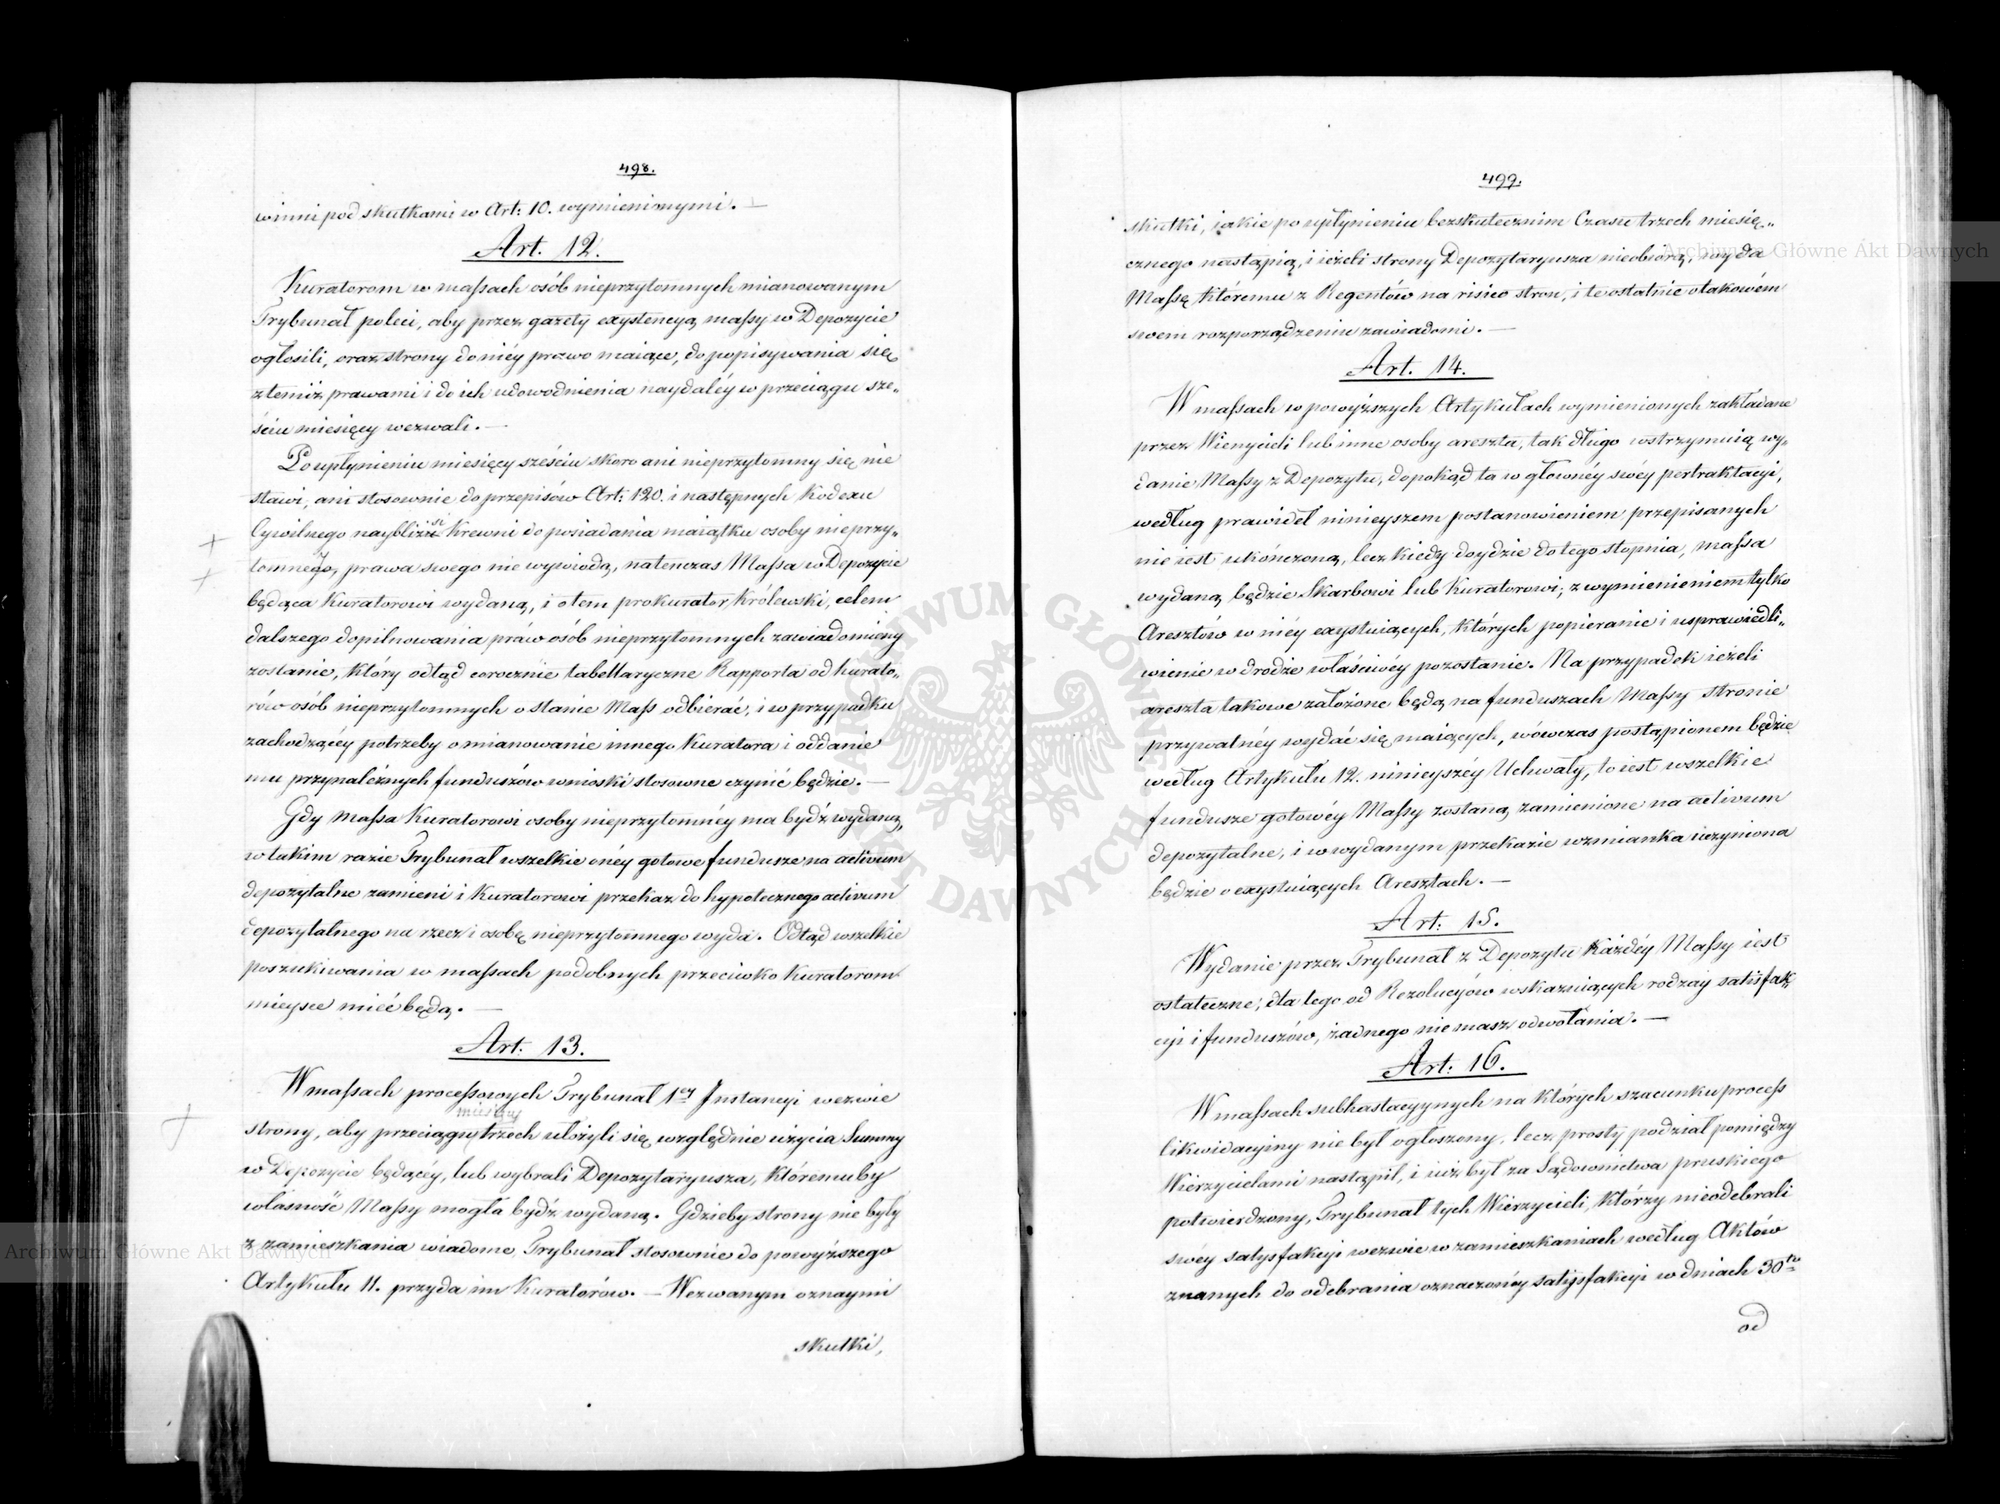 498.
winni pod skutkami w Art: 10. wymienionymi. —
Art. 12.
Kuratorom w massach osób nieprzytomnych mianowanym
Trybunał poleci, aby przez gazety exystencyą massy w Depozycie
ogłosili, oraz strony do niéy prawo maiące, do popisywania się
z temiż prawami i do ich udowodnienia naydaléy w przeciągu sze„
ściu miesięcy wezwali. —
Po upłynieniu miesięcy sześciu skoro ani nieprzytomny się nie
stawi, ani stosownie do przepisów Art: 120. i następnych Kodexu
Cywilnego naybliżsi Krewni do posiadania maiątku osoby nieprzy„
tomnéy, prawa swego nie wywiodą, natenczas Massa w Depozycie
będąca Kuratorowi wydaną, i o tem prokurator Królewski, celem
dalszego dopilnowania praw osób nieprzytomnych zawiadomiony
zostanie, który odtąd corocznie tabellaryczne Rapporta od kurato„
rów osób nieprzytomnych o stanie Mass odbierać, i w przypadku
zachodzącéy potrzeby o mianowanie innego Kuratora i oddanie
mu przynależnych funduszów wnioski stosowne czynić będzie. —
Gdy Massa Kuratorowi osoby nieprzytomnéy ma bydź wydaną,
w takim razie Trybunał wszelkie onéy gotowe fundusze na activum
depozytalne zamieni i Kuratorowi przekaz do hypotecznego activum
depozytalnego na rzecz i osobę nieprzytomnego wyda. Odtąd wszelkie
poszukiwania w massach podobnych przeciwko Kuratorom
mieysce mieć będą. —
Art: 13.
W massach processowych Trybunał 1éy Instancyi wezwie
miesięcy
strony, aby przeciągu trzech ułożyli się względnie użycia Summy
w Depozycie będącey, lub wybrali Depozytaryusza, któremuby
własność Massy mogła bydź wydaną. Gdzieby strony nie były
z zamieszkania wiadome, Trybunał stosownie do powyższego
Artykułu 11. przyda im Kuratorów. — Wezwanym oznaymi
skutki,
499.
skutki, iakie po upłynieniu bezskutecznim Czasu trzech miesię„
cznego nastąpią, i ieżeli strony Depozytaryusza nieobiorą, wyda
Massę któremu z Regentów na risico stron, i te ostatnie o takowém
swem rozporządzeniu zawiadomi. —
Art. 14.
W massach w powyższych Artykułach wymienionych zakładane
przez Wierzycieli lub inne osoby areszta, tak długo wstrzymuią wy„
danie Massy z Depozytu, dopokąd ta w głównéy swéy pertraktacyi,
według prawideł ninieyszem postanowieniem przepisanych
nie iest ukończoną, lecz kiedy doydzie do tego stopnia, massa
wydaną będzie Skarbowi lub Kuratorowi; z wymienieniem tylko
Aresztów w niéy exystuiących, których popieranie i usprawiedli„
wienie w drodze właściwéy pozostanie. Na przypadek ieżeli
areszta takowe założone będą na funduszach Massy stronie
przywatnéy wydać się maiących, wówczas postąpionem będzie
według Artykułu 12. ninieyszéy Uchwały, to iest wszelkie
fundusze gotowéy Massy zostaną zamienione na activum
depozytalne, i w wydanym przekazie wzmianka uczyniona
będzie o exystuiących Aresztach. —
Art: 15.
Wydanie przez Trybunał z Depozytu Każdéy Massy iest
ostateczne; dla tego od Rezolucyów wskazuiących rodzay satisfak„
cyi i funduszów, żadnego niemasz odwołania. —
Art: 16.
W massach subhastacyynych na których szacunku process
likwidacyiny nie był ogłoszony, lecz prosty podział pomiędzy
Wierzycielami nastąpił, i iuż był za Sądownictwa pruskiego
potwierdzony, Trybunał tych Wierzycieli, którzy nieodebrali
swéy satysfakcyi wezwie w zamieszkaniach według Aktów
znanych do odebrania oznaczonéy satysfakcyi w dniach 30tu
od
Archiwum Główne Akt Dawnych
Archiwum Główne Akt Dawnych
ARCHIWUM GŁÓWNE AKT DAWNYCH